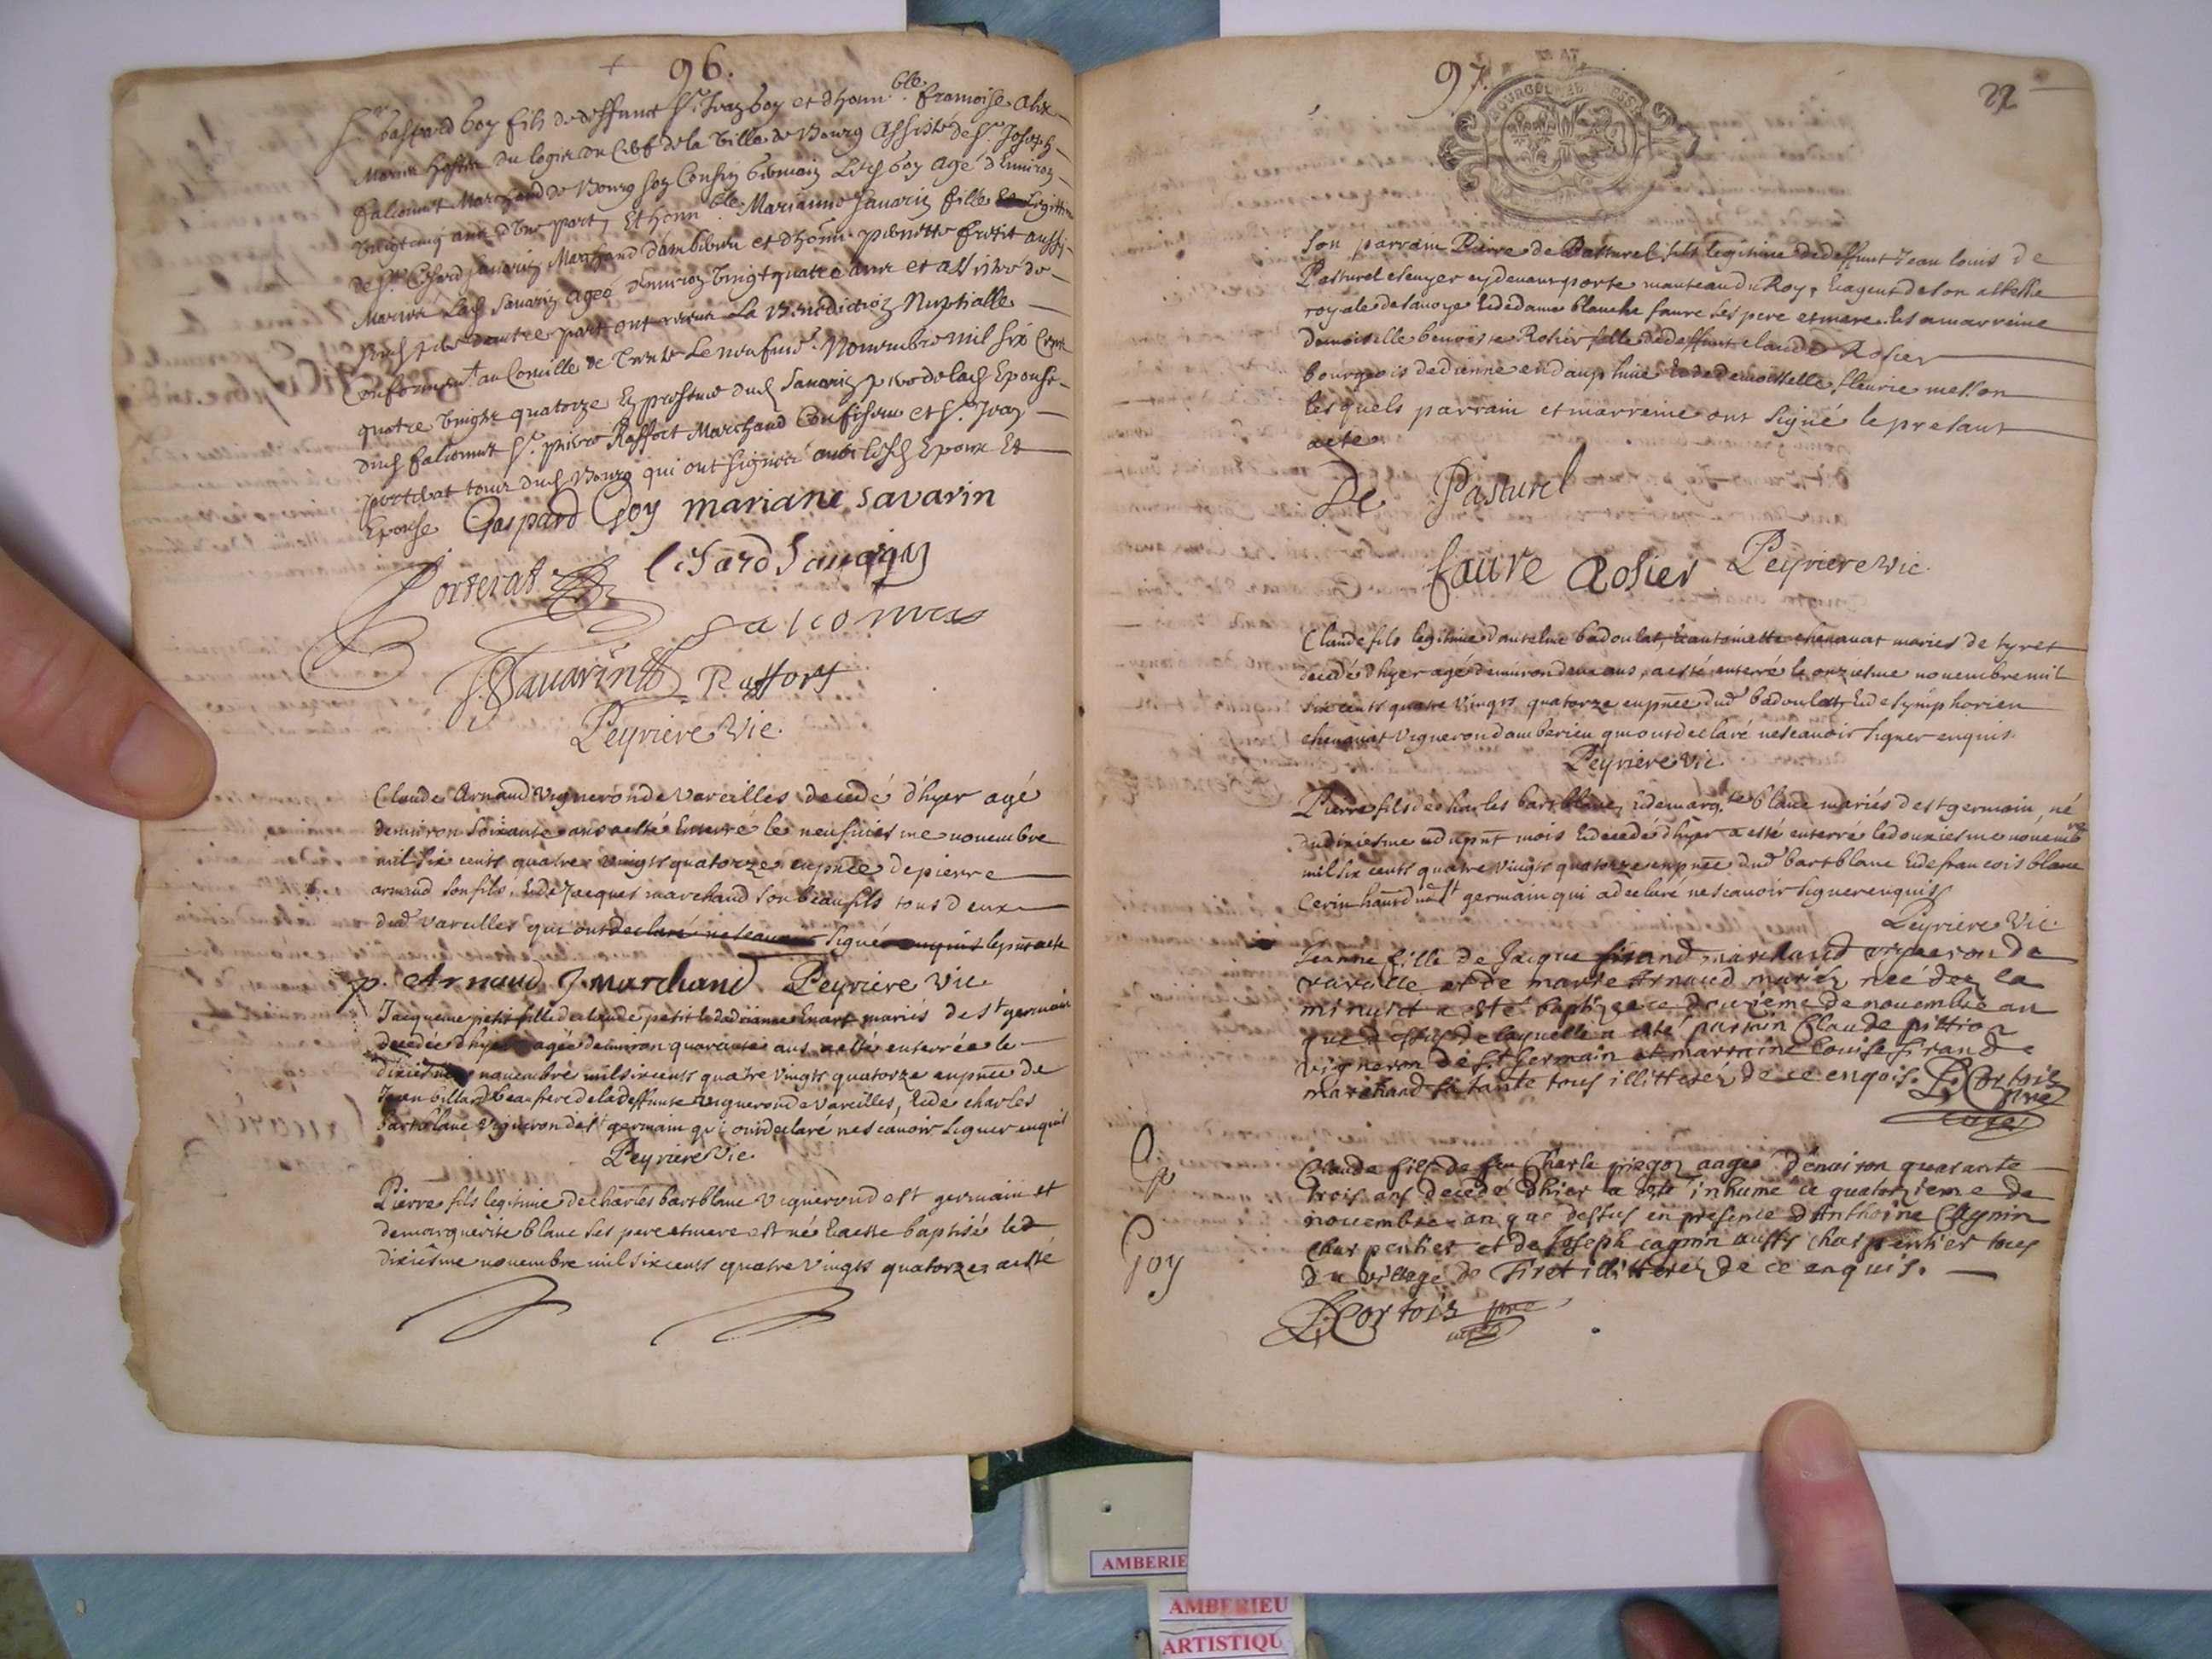 96.
Sr. Gaspard Goy fils de deffunct Sr. Ivan Goy et d'honn.ble francoise alix
Mariés hoste du logis du Cerf de la Ville de Bourg Assisté de Sr. Joseph
falconnet Marchand de Bourg son Cousin Germain Led. Goy Agé d'Environ
vingt cinq ans d'Une part, Et honn.ble Marianne Savarin fille Legittime
de Sr. Marchand d'amberieu et d'honn. pierrette fretit aussy
Mariés Lad. Savarin agée d'environ vingt quatre ans et assistée de
sond. pere d'autre part ont receu La Benediction Nuptialle
Conformem.t au Concille de Trente Le neufme. Novembre mil six Cens
quatre vingts quatorze En presence dud. Savarin pere de lad. Epouse
dud. falconnet Sr. pierre Raffort Marchand Confiseur et Sr. Ivan
porterat tous dud. Bourg qui ont signés avec lesd. Epoux Et
Epouse Gaspard Goy mariane savarin
Porterat
Savarin
falconnet
Savarin Raffort
Peyriere Vic.
Claude Arnaud Vigneron de Vareilles decedé d'hyer agé
denviron soixante ans a esté Enterré le neufviesme novembre
mil six cents quatre vingts quatorze en pnce de pierre
arnaud son fils, & de Jacques marchand son beau fils tous deux
dud. Vareilles qui ont declaré ne scavoir signé enquis le pnt acte
p. Arnaud J. marchand Peyriere Vic.
Jacqueme petit fille de claude petit & de mariés de st germain
decedée d'hyer agée denviron quarante ans a esté enterrée le
dixiesme novembre mil six cents quatre vingts quatorze en pnce de
Jean billard beau frere de la deffunte Vigneron de Vareilles, & de charles
bartblanc Vigneron de st germain qui ont declaré ne scavoir signer enquis
Peyriere Vic.
Pierre fils legitime de charles bartblanc Vigneron de st germain et
de marguerite blanc ses pere et mere est né & a esté baptisé le
dixiesme novembre mil six cents quatre vingts quatorze, a esté
97.
BOURGOGNE BRESSE
son parrain Pierre de Pasturel fils legitime de deffunt Jean louis de
Pasturel escuyer cy devant porte manteau du Roy, & agent de son altesse
royale de savoye & de dame blanche faure ses pere et mere. Et sa marreine
demoiselle benoiste Rosier fille de deffunt claude Rosier
bourgeois de vienne en dauphiné & de demoiselle fleurie mellon
lesquels parrain et marreine ont signé le presant
acte
De Pasturel
faure Rosier Peyriere Vic.
Claude fils legitime d'antelme badoulat, & antoinette chenavat mariés de tyret
decedé d'hyer agé denviron deux ans, a esté enterré le onziesme novembre mil
six cents quatre vingts quatorze en pnce dud. badoulat, & de symphorien
chenavat Vigneron d'amberieu qui ont declaré ne scavoir signer enquis
Peyriere Vic.
Pierre fils de charles bartblanc, & de marg.te blanc mariés de st germain, né
du dixiesme du pnt mois & decedé d'hyer a esté enterré le douziesme novembre
mil six cents quatre vingts quatorze en pnce dud. bartblanc & de francois blanc
st germain qui a declaré ne scavoir signer enquis
Peyriere Vic.
Jeanne fille de Jacque marchand vigneron de
vareille et de marie Arnaud mariés née dez la
minuict a esté baptizée ce douzieme de novembre an
que dessus de laquelle a esté parrain Claude pittion
vigneron de st Germain et marraine louise
marchand sa tante tous illitterez de ce enquis. Cortois
Claude fils de feu Charle aagé d'environ quarante
trois ans decedé d'hier a esté inhumé ce quatorzieme de
novembre an que dessus en presence d'Anthoine Cagnin
charpentier et de Joseph cagnin aussy charpentier tous
du village de Tiret illitterez de ce enquis.
Cortois
Goy
AMBERIE
AMBERIEU
ARTISTIQU